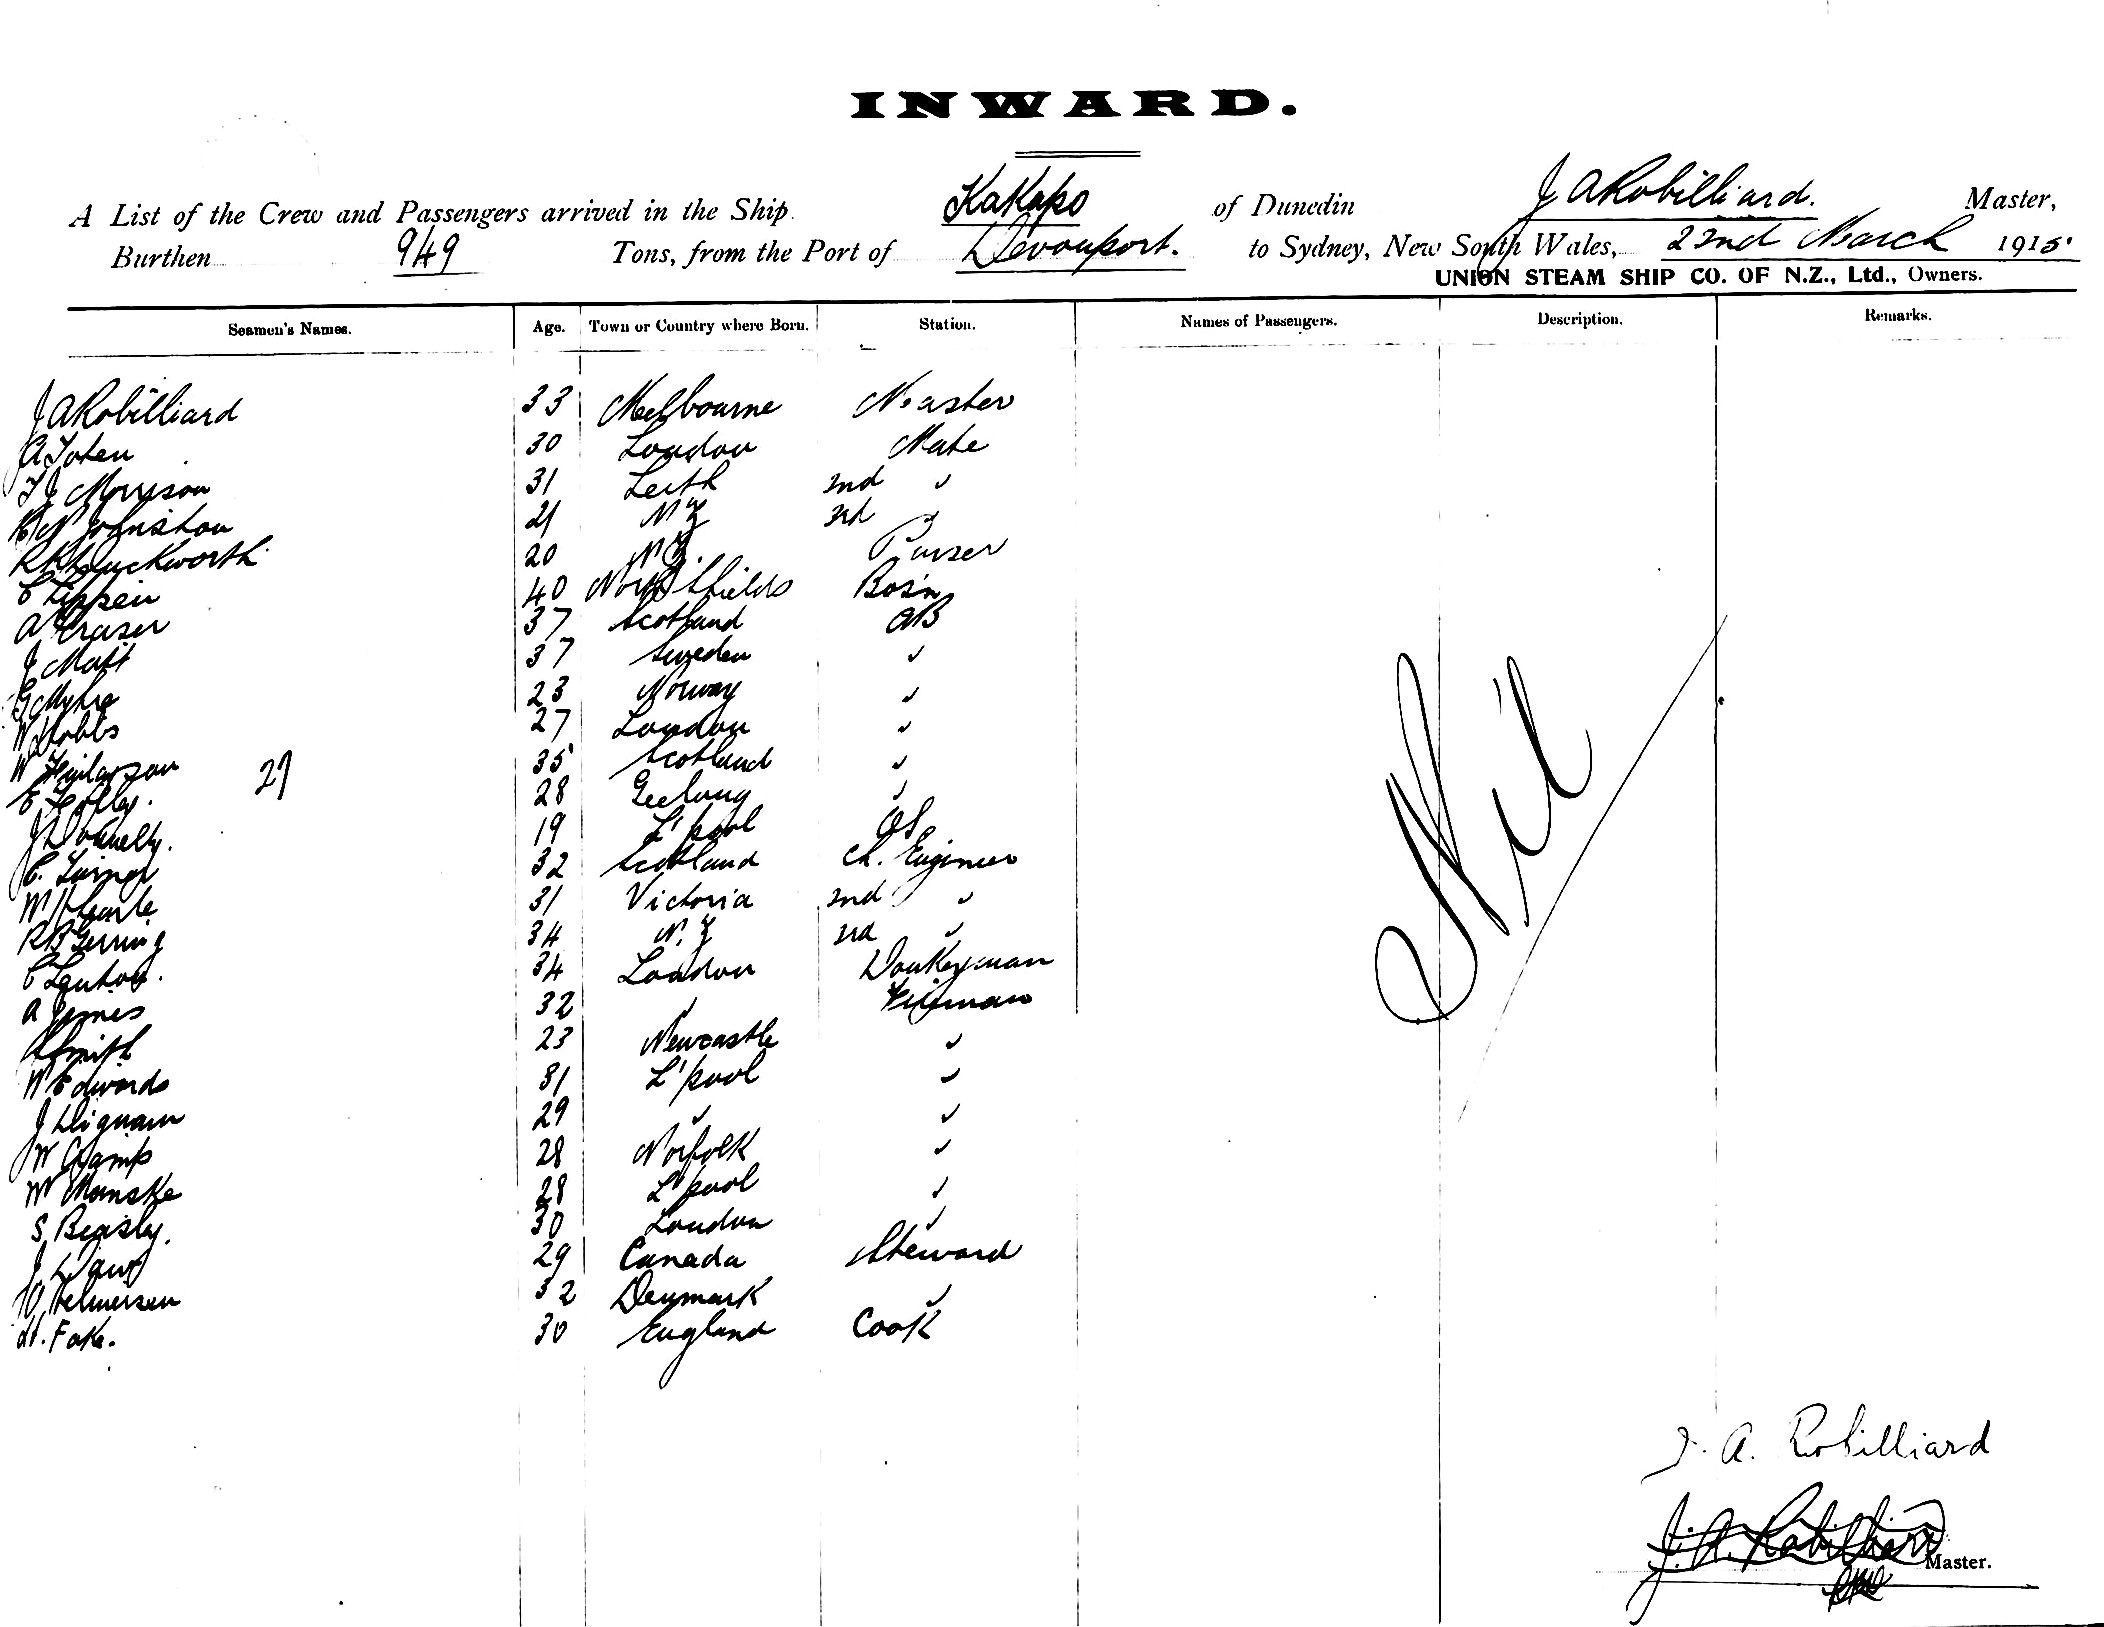 INWARD.
A List of the Crew and Passengers arrived in the Ship Kakapo of Dunedin J A Robilliard. Master,
Burthen 949 Tons, from the Port of Devonport. to Sydney, New South Wales, 22nd March 1915
UNION STEAM SHIP CO. OF N.Z., Ltd., Owners.
Seamen's Names. Age. Town or Country where Born. Station. Names of Passengers. Description. Remarks.
J A Robilliard 33 Melbourne Master
A 30 London Mate
Morrison 31 Leith 2nd "
Johnston 21 N Z 3rd "
Duckworth 20 N Z. Purser
40 North Shields Bos'n
A Fraser 37 Scotland AB
J 37 Sweden "
G Myhre 23 Norway "
W Hobbs 27 London "
W Finlayson 35 Scotland "
27
E 28 Geelong "
J Donnelly. 19 L'pool OS
C. Turner 32 Scotland Ch. Engineer
W 31 Victoria 2nd "
R B Gerring 34 N. Z 3rd "
C 34 London Donkeyman
A James 32 " Fireman
Smith 23 Newcastle "
W Edwards 31 L'pool "
J Dignam 29 " "
W 28 Norfolk "
W Manske 28 L'pool "
S. Beasly. 30 London "
J. 29 Canada Steward
Helmersen 32 Denmark "
H. Fake. 30 England Cook
Nil
J. A. Robilliard
J. A. Robilliard
Master.